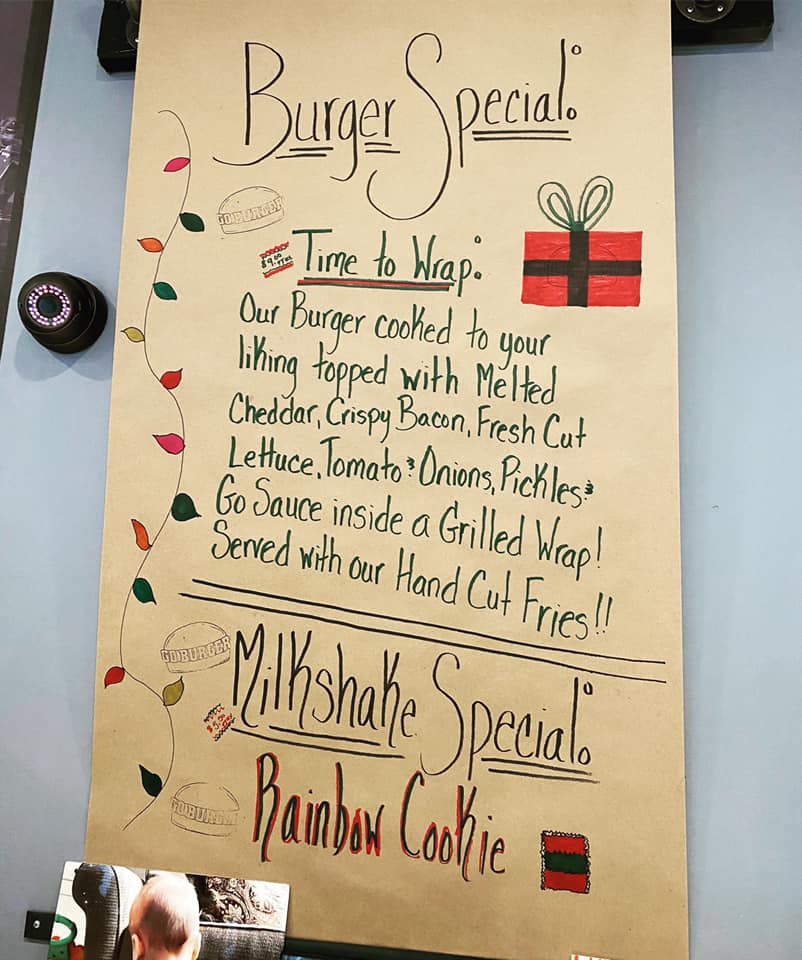 Burger Special:
GO BURGER
$9.00
+Tax
Time to Wrap:
Our Burger cooked to your
liking topped with Melted
Cheddar, Crispy Bacon, Fresh Cut
Lettuce, Tomato & Onions, Pickles &
Go Sauce inside a Grilled Wrap!
Served with our Hand Cut Fries!!
GO BURGER
Milkshake Special:
$5.50
Rainbow Cookie
GO BURGER